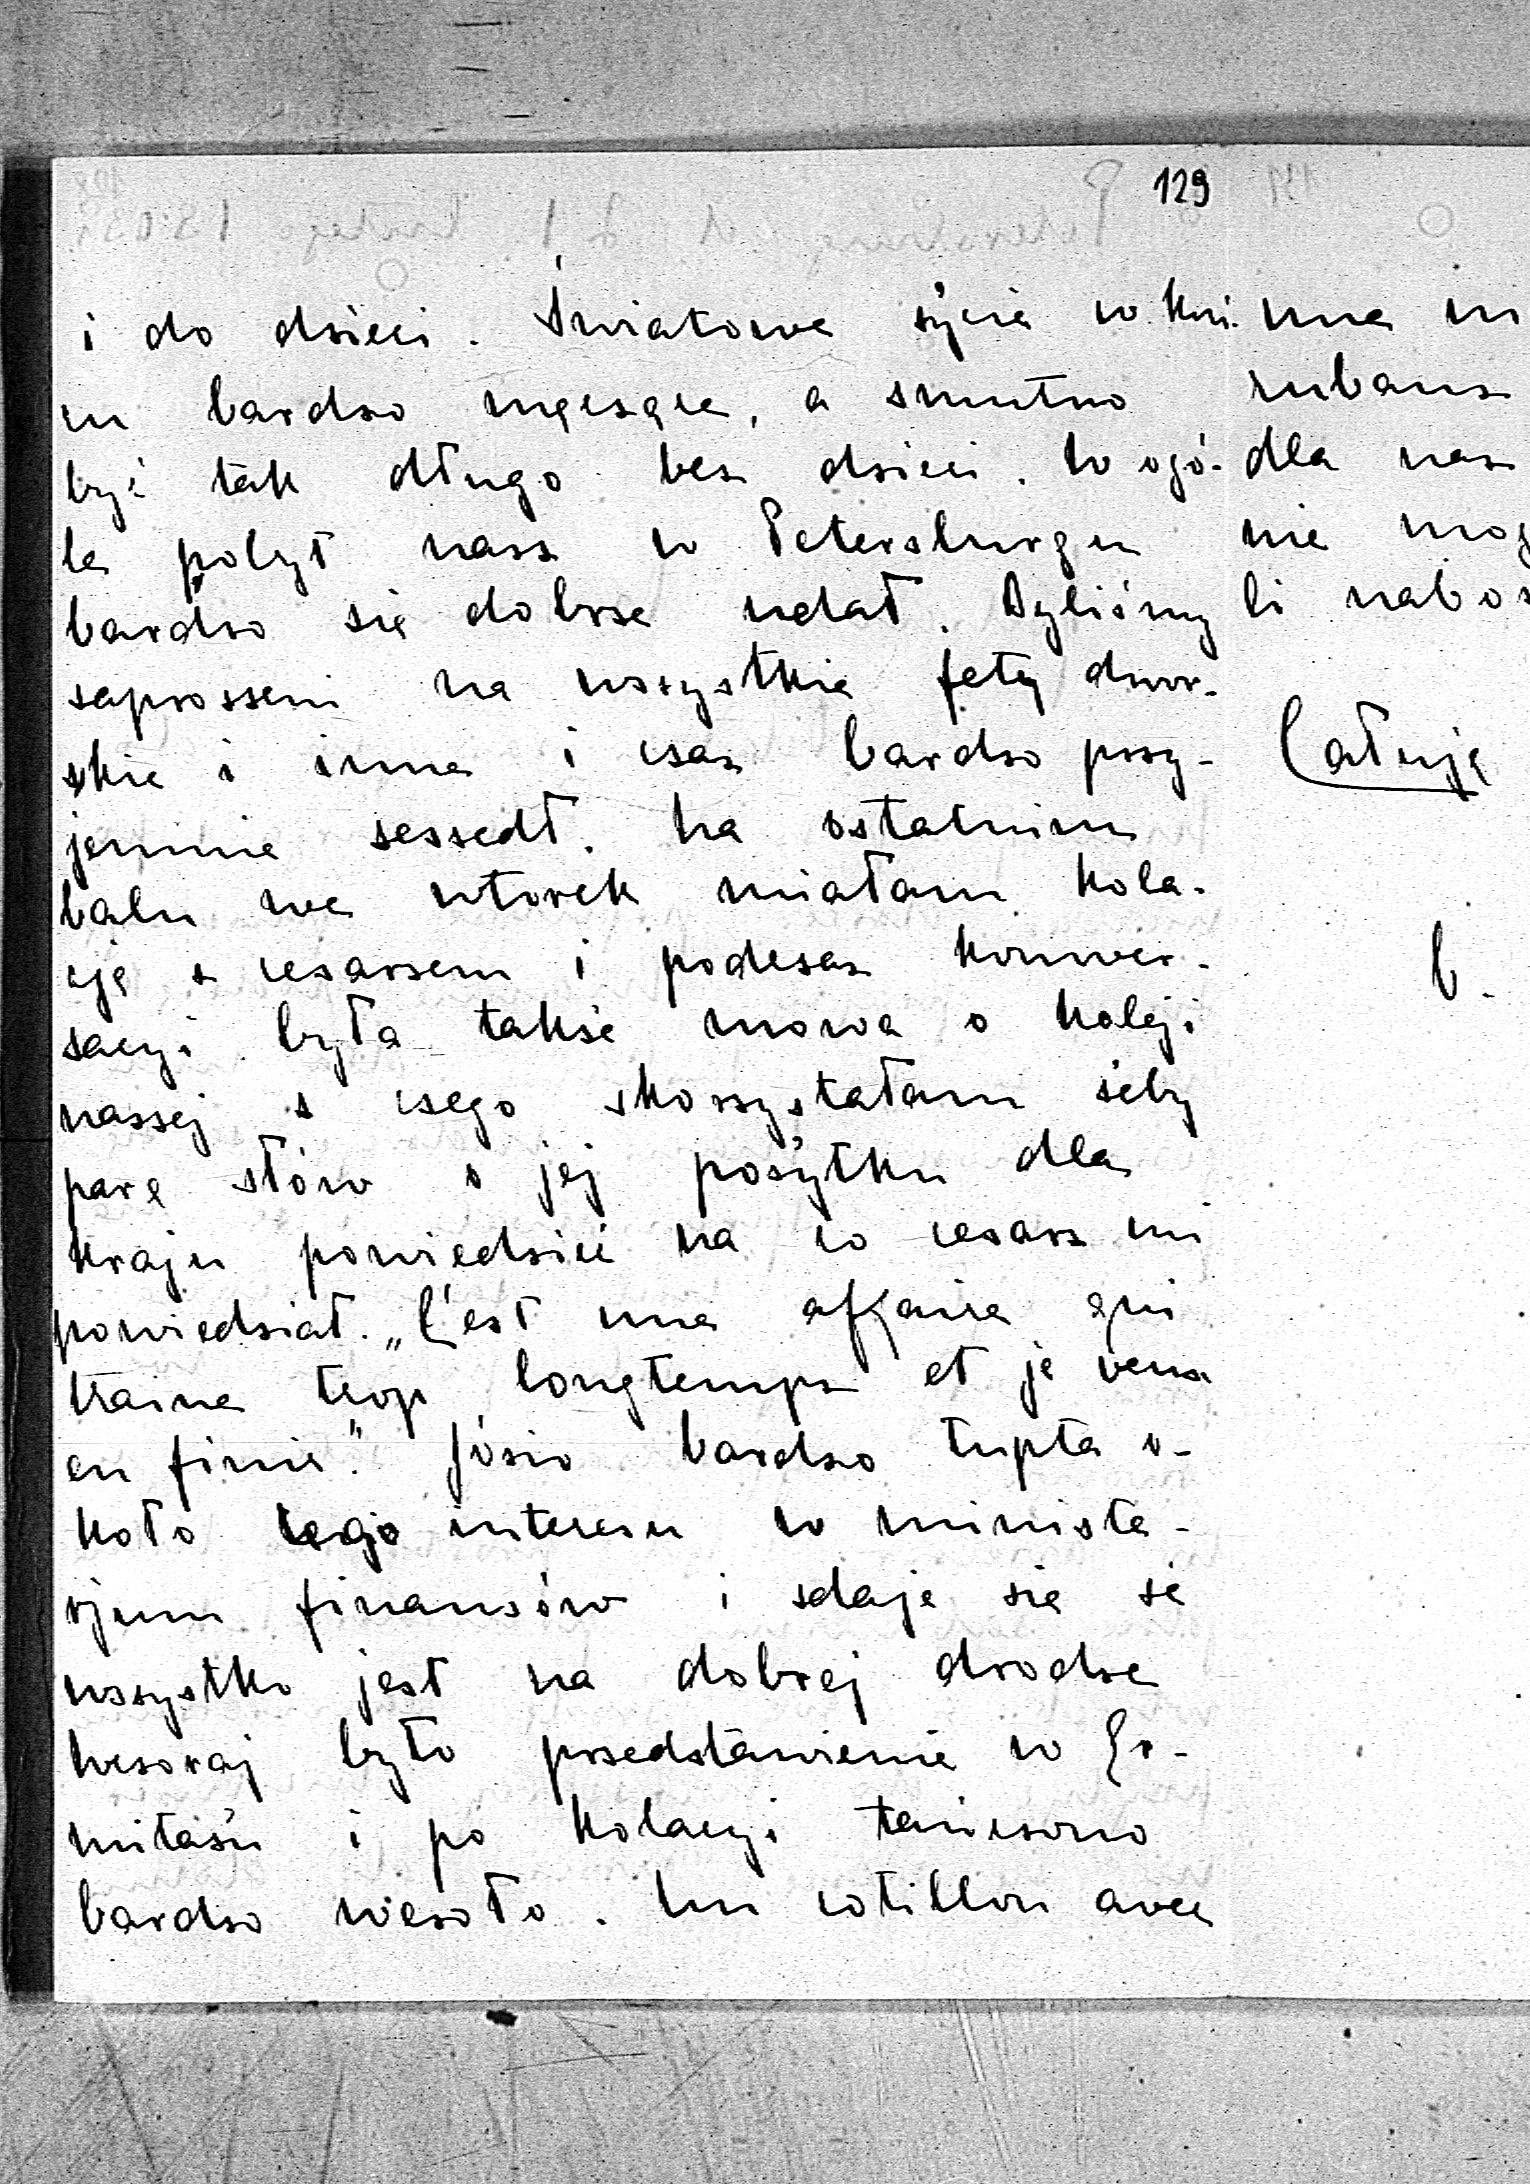 129
i do dzieci. Światowe życie w koń.
cu bardzo męczące, a smutno
być tak długo bez dzieci. W ogó-
le pobyt nasz w Petersburgu
bardzo się dobrze udał. Byliśmy
zaproszeni na wszystkie fety dwor-
skie i inne i czas bardzo przy-
jemnie zeszedł. Na ostatnim
balu we wtorek miałam kola-
cję z cesarzem i podczas konwer-
sacyi była także mowa o koleji
naszej z czego skorzystałam żeby
parę słów o jej pożytku dla
kraju powiedzieć na co cesarz mi
powiedział. „C'est une affaire qui
traine trop longtemps et je veux
en finir." Józio bardzo tupta o-
koło tego interesu w ministe-
rjum finansów i zdaje się że
wszystko jest na dobrej drodze
Wczoraj było przedstawienie w Er-
mitażu i po kolacyi tańczono
bardzo wesoło. Un cotillon avec
rubans
dla nas
nie mog
li nabo
Całuję
b.